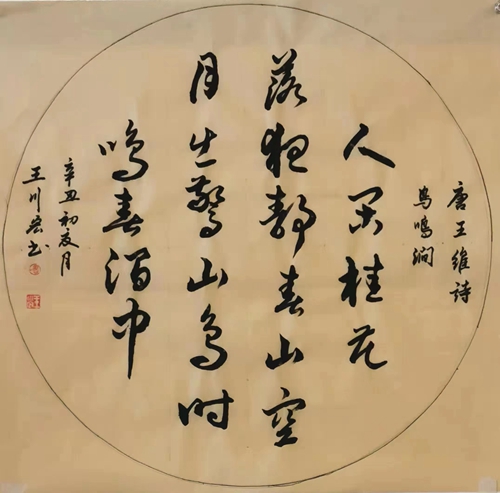 唐王維詩
鸟鸣涧
人闲桂花
落夜静春山空
月出驚山鸟时
鸣春涧中
辛丑初夏月
王川书